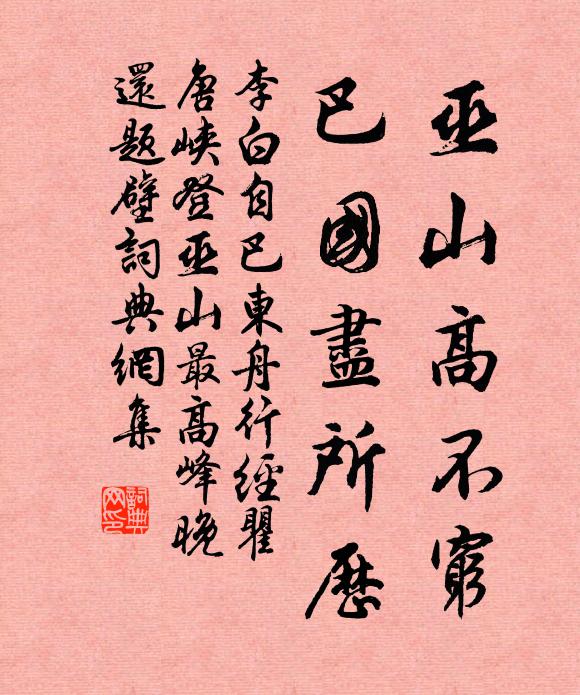 巫山高不窮
巴國盡所歷
李白自巴東舟行經瞿
唐峽登巫山最高峰晚
還題壁詞典網集
詞典
网印